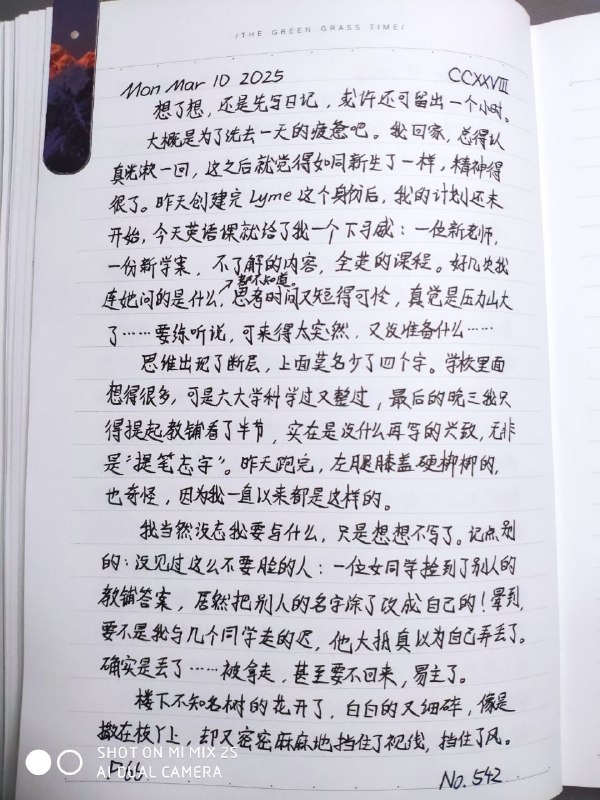 /THE GREEN GRASS TIME/
Mon Mar 10 2025 CCXXVIII
想了想，还是先写日记，或许还可留出一个小时。
大概是为了洗去一天的疲惫吧。我回家，总得认
真洗漱一回，这之后就觉得如同新生了一样，精神得
很了。昨天创建完Lyme这个身份后，我的计划还未
开始，今天英语课就给了我一个下马威：一位新老师，
一份新学案，不了解的内容，全英的课程。好几次我
都不知道。
连她问的是什么，思考时间又短得可怜，真觉是压力山大
了……要练听说，可来得太突然，又没准备什么……
思维出现了断层，上面莫名少了四个字。学校里面
想得很多，可是六大学科学过又整过，最后的晚三我只
得提起教辅看了半节，实在是没什么再写的兴致，无非
是“提笔忘字”。昨天跑完，左腿膝盖硬梆梆的，
也奇怪，因为我一直以来都是这样的。
我当然没忘我要写什么，只是想想不写了。记点别
的：没见过这么不要脸的人：一位女同学捡到了别人的
教辅答案，居然把别人的名字涂了改成自己的！晕到，
要不是我与几个同学走的迟，他大抵真以为自己弄丢了。
确实是丢了……被拿走，甚至要不回来，易主了。
楼下不知名树的花开了，白白的又细碎，像是
撒在枝丫上，却又密密麻麻地挡住了视线，挡住了风。
SHOT ON MI MIX 2S
AI DUAL CAMERA
No. 542